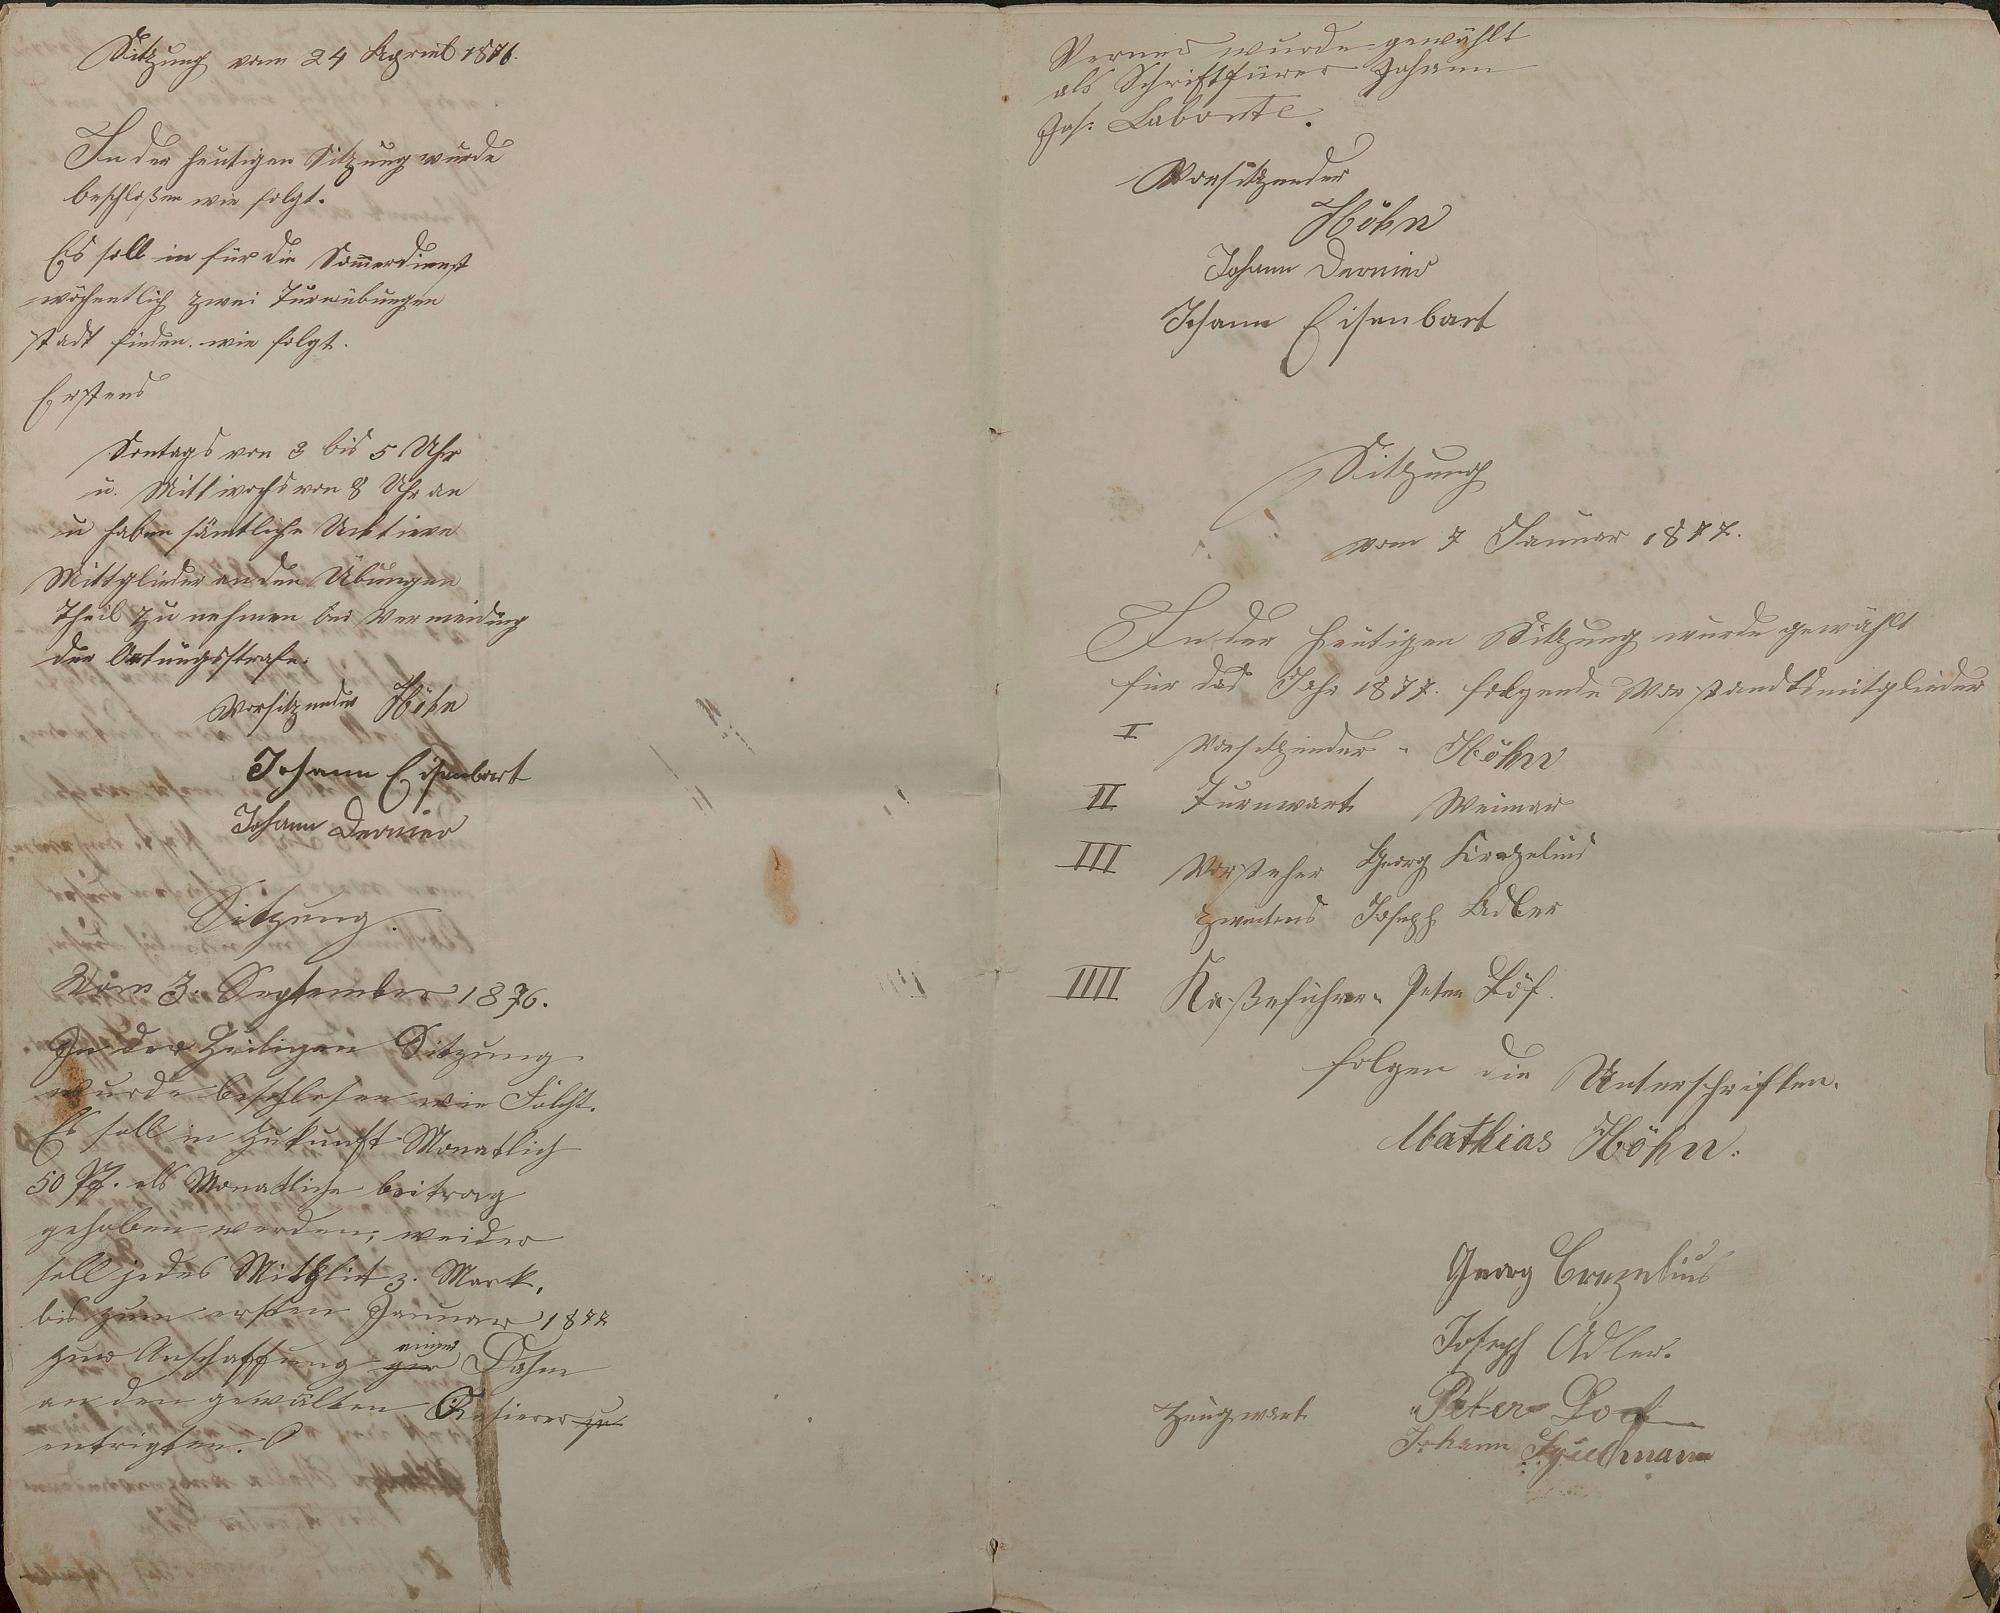 Sitzung vom 24 Apriel 1876.
In der heutigen Sitzung wurde
beschloßen wie folgt.
Es soll in für die Sommerdienst
wöchentlich zwei Turnübungen
stadt finden. wie folgt.
Erstens
Sontags von 3 bis 5 Uhr
u. Mittwochs von 8 Uhr an
u haben sämtliche Acktieve
Mittglieder an den Übungen
Theil zu nehmen bei Vermeidung
der Ortungsstrafe.
Vorsitzender Höhn
Johann Eisenbart
Johann Dernier
Sitzung.
Vom 3. September 1876.
In der Heitigen Sitzung
wurde beschlosen wie Folcht.
Es soll in Zukunft Monatlich
50 Pf. als Monatliche beitrag
gehoben werden, weider
soll jedes Mitglit 3. Mark,
bis zum ersten Januar 1877
zur Anschaffung einer Fahn
an den gewälten Kasierer zu
entrigten.
Verner wurde gewählt
als Schriftfürer Johann
Jos: Labonte.
Vorsitzender
Höhn
Johann Dernier
Johann Eisenbart
Sitzung
vom 7 Januar 1877.
In der heutigen Sitzung wurde gewählt
für das Jahr 1877. folgende Vorstandtsmitglieder
I Vorsitzender - Höhn
II Turnwart Weimar
III Vorsteher Georg Krezelius
zweitens Joseph Adler
IIII Kaßeführer Peter Löf.
folgen die Unterschriften.
Mathias Höhn.
Georg Crezelius
Joseph Adler.
Peter Loef
Zeugwart Johann Spielmann